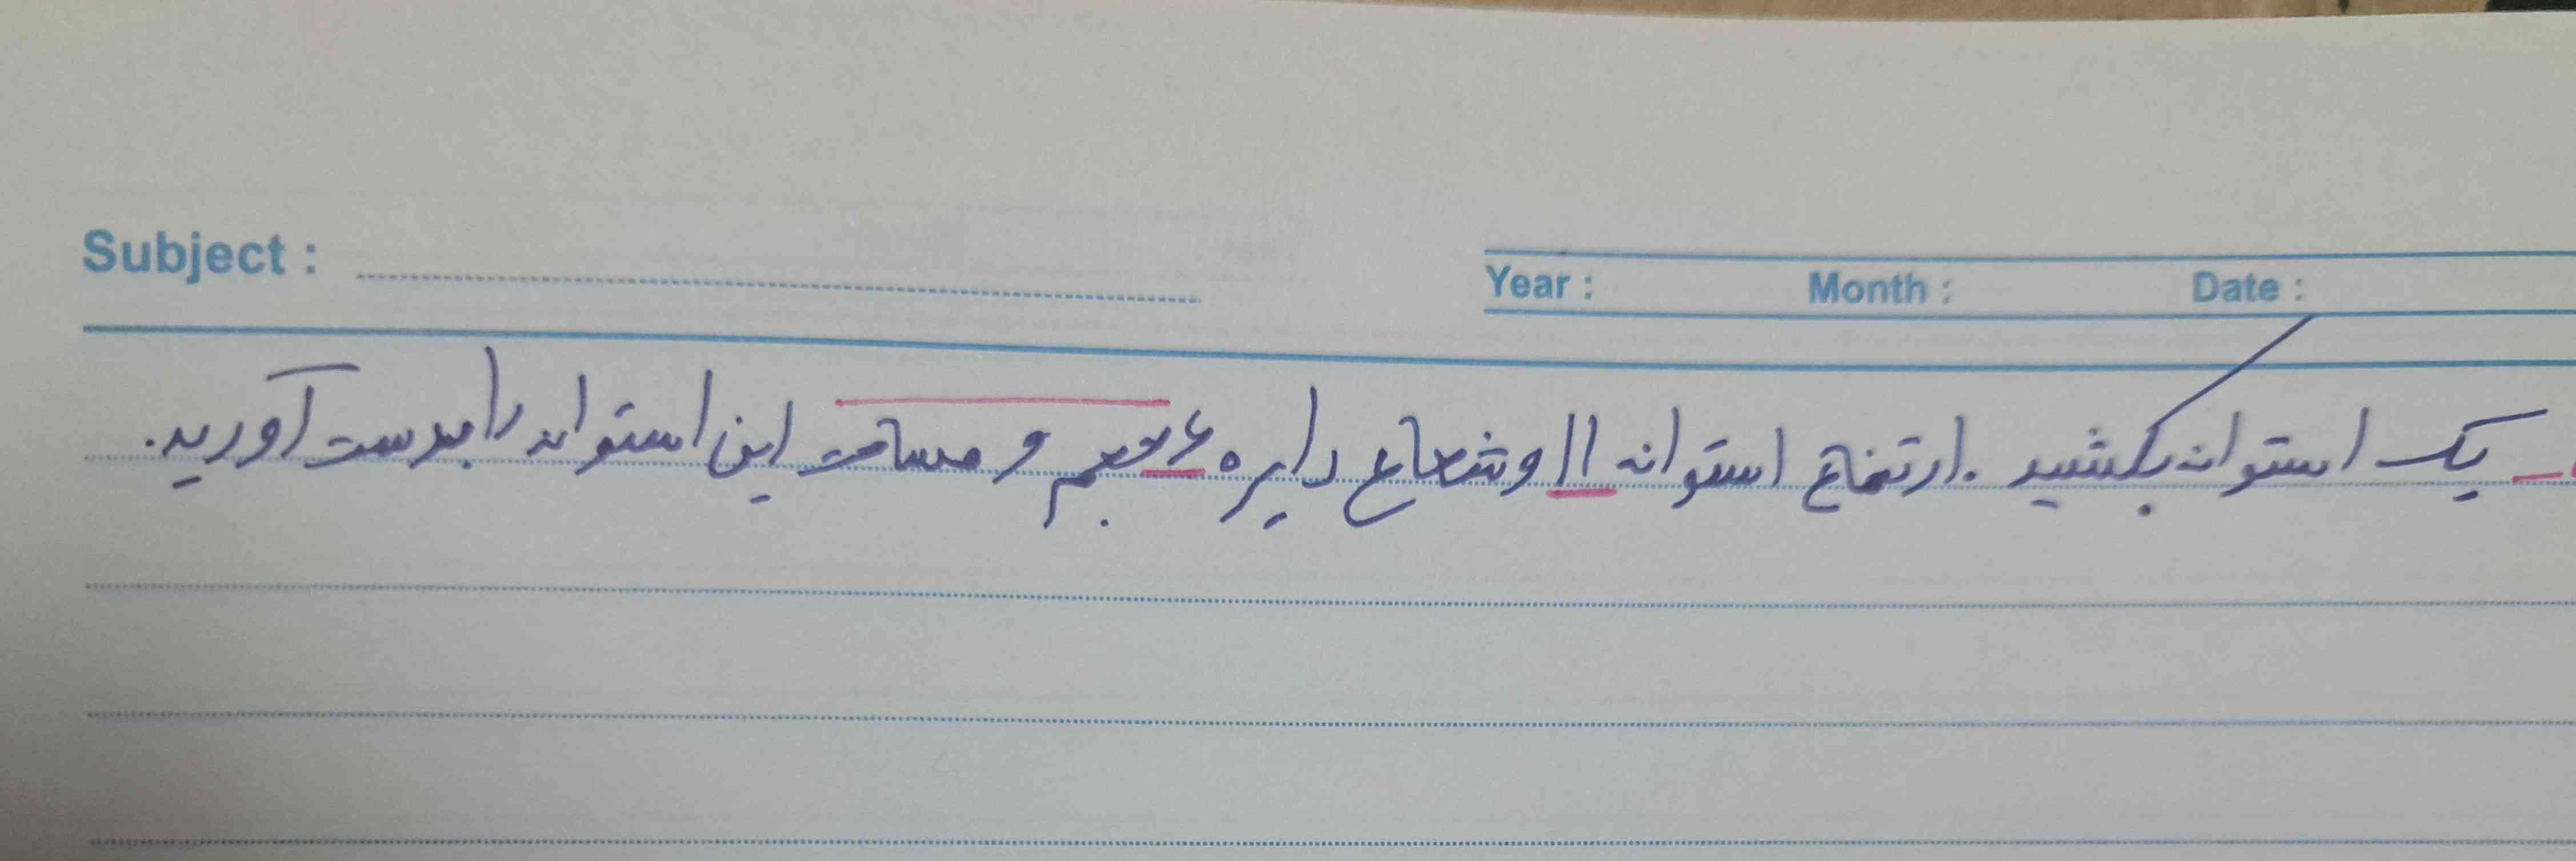 Subject :
Year : Month : Date :
یک استوانه بکشید . ارتفاع استوانه ۱۱ و شعاع دایره ۶ حجم و مساحت این استوانه را بدست آورید.